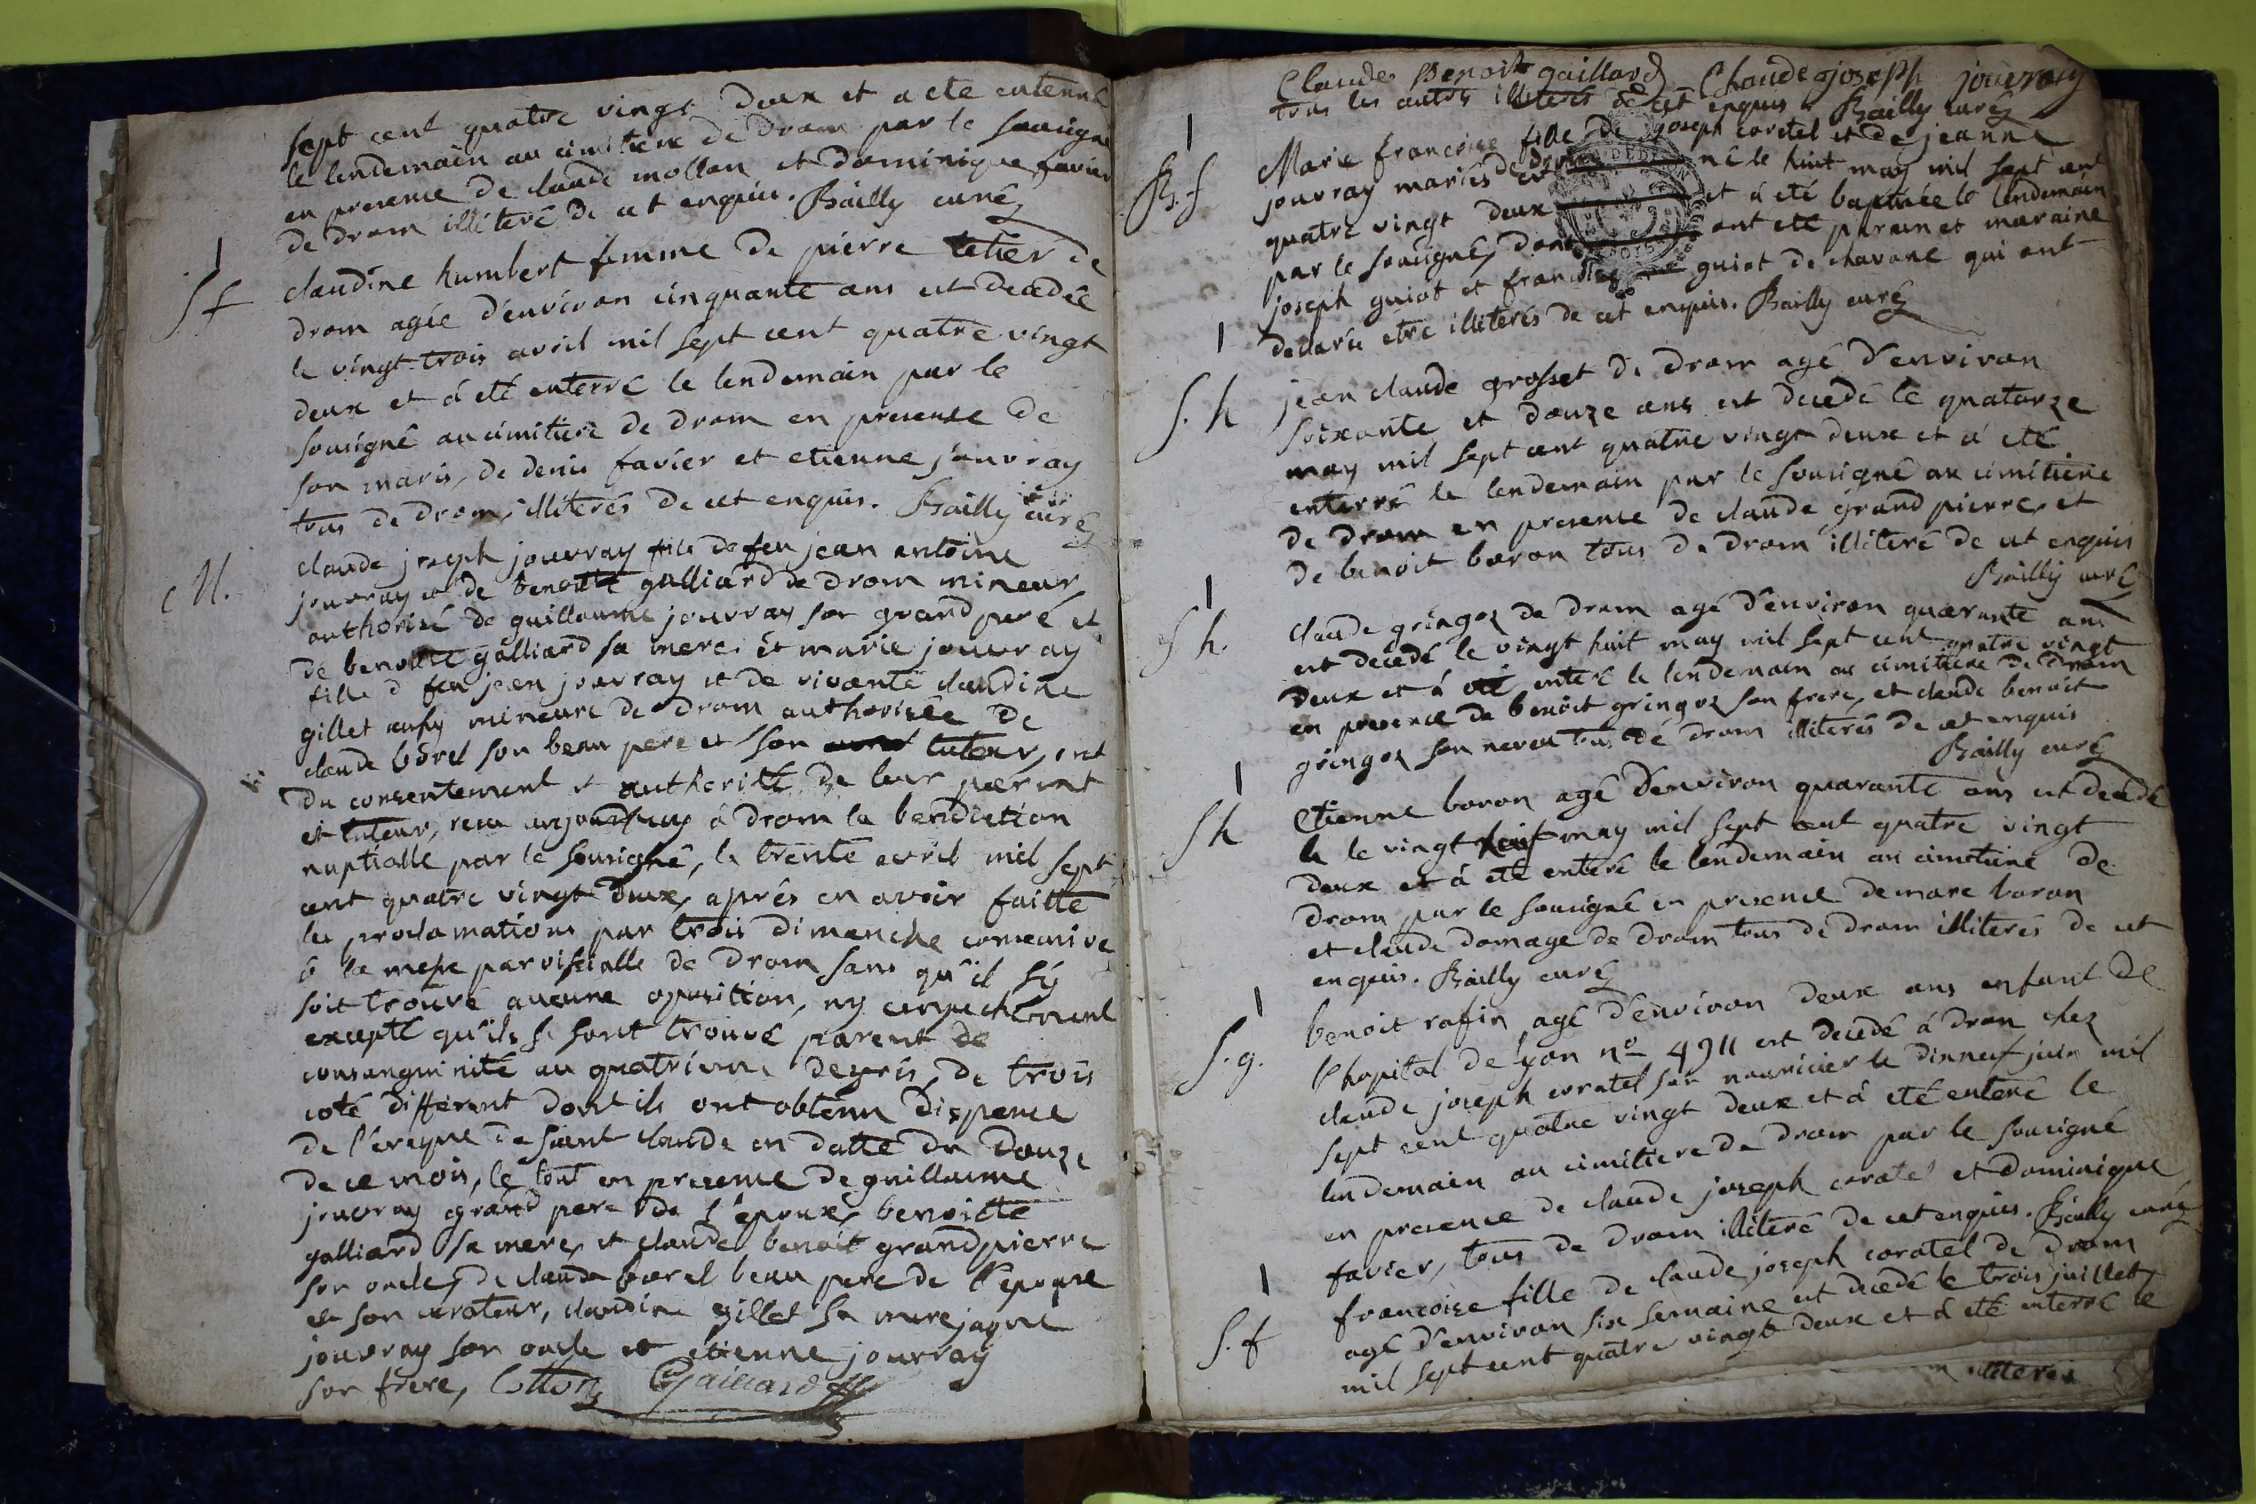 sept cent quatre vingt deux et a ete enterrné
le lendemain au cimitiere de drom par le sousigné
en presence de claude mollan et dominique favier
de drom illiteré de cet enquis. Bailly curé
S f
claudine humbert femme de pierre tetier de
drom agée d'environ cinquante ans est decedée
le vingt trois avril mil sept cent quatre vingt
deux et à eté enterré le lendemain par le
sousigné au cimitiere de drom en presence de
son maris, de denis favier et etienne jouvray
tous de drom, illiterés de cet enquis. Bailly curé
M.
claude joseph jouvray fils de feu jean antoine
jouvray et de benoitte galliard de drom mineur
authorisé de guillaume jouvray son grand peré et
de benoitte galliard sa mere. et marie jouvray
fille d feu jean jouvray et de vivante claudine
gillet aussy mineure de drom authorisée de
claude borel son beau pere et son tuteur, ont
du consentement et authorité de leur parent
et tuteur, recu aujourd'huy à drom la benediction
nuptialle par le sousigné, le trente avril mil sept
cent quatre vingt deux, aprés en avoir faitte
les proclamations par trois dimanche consecutive
à la messe parroissialle de drom sans qu'il sy
soit trouvé aucune oposition, ny empechement
excepté qu'ils se sont trouvé parent de
consanguinité au quatrieme degrés, de trois
coté different dont ils ont obtenu dispence
de l'éveque de saint claude en datte du douze
de ce mois, le tout en presence de guillaume
jouvray grand pere de l'époux, benoitte
galliard sa mere, et claude benoit grandpierre
son oncle, de claude borel beau pere de l'epouse
et son curateur, claudine gillet sa mere jaque
jouvray son oncle et étienne jouvray
son frere, Cotton Gaillard
Claude Benoit gaillard Claude joseph jouvray
tous les autres illiterés de cet enquis Bailly curé
B. f
Marie francoise fille de joseph coratel et de jeanne
jouvray mariés de drom né le huit may mil sept cent
quatre vingt deux et à eté baptisée le lendemain
par le sousigné, dont ont eté parain et maraine
joseph guiot et francoise guiot de chavane qui ont
declarés etre illiterés de cet enquis. Bailly curé
S. h
jean claude grosset de drom agé d'environ
soixante et douze ans est decedé le quatorze
may mil sept cent quatre vingt deux et à eté
enterré le lendemain par le sousigné au cimitiere
de drom en presence de claude grand pierre, et
de benoit boron tous de drom illiteré de cet enquis
Bailly curé
S h.
claude gringoz de drom agé d'environ quarante ans
est decedé le vingt huit may mil sept cent quatre vingt
deux et à eté enteré le lendemain au cimitiere de drom
en presence de benoit gringoz son frere, et claude benoit
gringoz son neveu tous de drom illiterés de cet enquis
Bailly curé
S h
Etienne boron agé d'environ quarante ans est decedé
le le vingt huit may mil sept cent quatre vingt
deux et à eté enteré le lendemain au cimetiere de
drom par le sousigné en presence de marc boron
et claude domage de drom tous de drom illiterés de cet
enquis. Bailly curé
S. g.
benoit rafin agé d'environ deux ans enfant de
l'hopital de lyon no 4911 est decedé à drom chez
claude joseph coratel son nouricier le dixneuf juin mil
sept cent quatre vingt deux et à eté enteré le
lendemain au cimitiere de drom par le sousigné
en presence de claude joseph coratel et dominique
favier, tous de drom illiteré de cet enquis. Bailly curé
S. f
francoise fille de claude joseph coratel de drom
agé d'environ six semaine est decedé le trois juillet
mil sept cent quatre vingt deux et à eté enterré le
illiterés